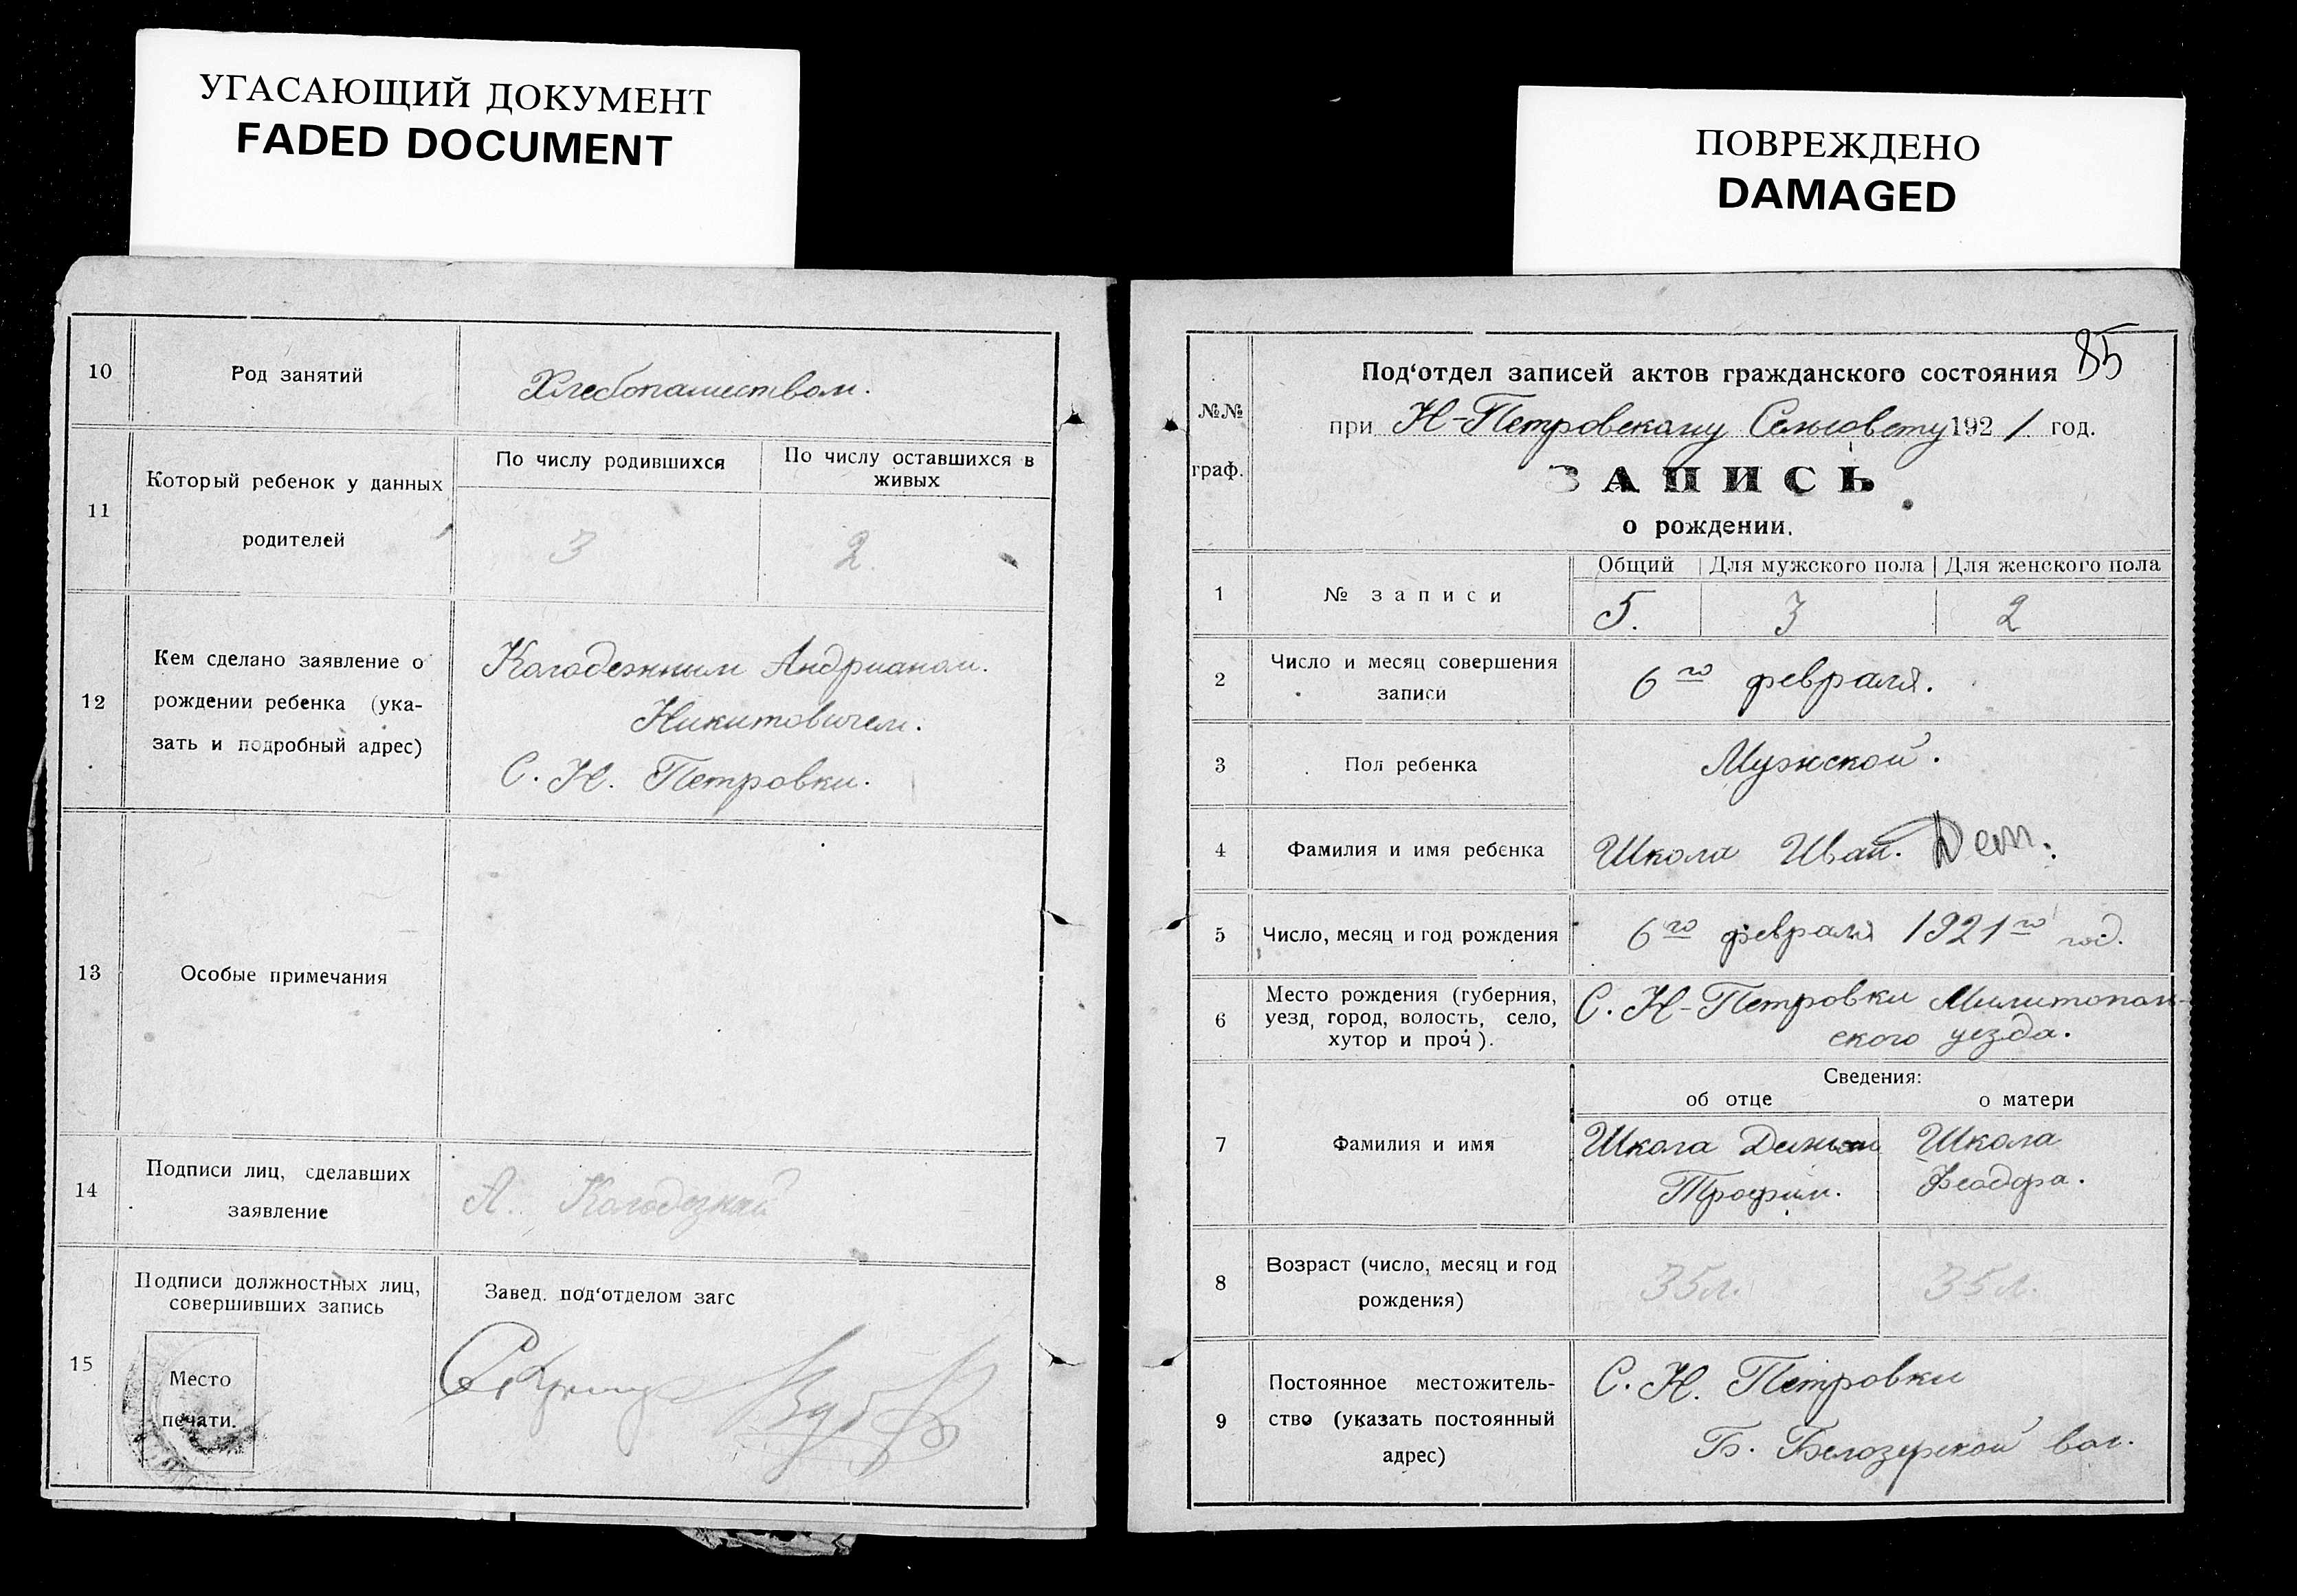 УГАСАЮЩИЙ ДОКУМЕНТ
FADED DOCUMENT
10
Род занятий
Хлебопашеством.
11
Который ребенок у данных
родителей
По числу родившихся
По числу оставшихся в
живых
3
2.
12
Кем сделано заявление о
рождении ребенка (ука-
зать и подробный адрес)
Колодежным Андрианом.
Никитовичем.
С. Н. Петровки.
13
Особые примечания
14
Подписи лиц, сделавших
заявление
А. Колодезкай
15
Подписи должностных лиц,
совершивших запись
Место
печати.
Завед. под‘отделом загс
ПОВРЕЖДЕНО
DAMAGED
85
№№
граф.
Под‘отдел записей актов гражданского состояния
при Н-Петровскому Сельсовету 1921. год.
ЗАПИСЬ
о рождении.
1
№ записи
Общий
Для мужского пола
Для женского пола
5.
3
2
2
Число и месяц совершения
записи
6го февраля.
3
Пол ребенка
Мужской.
4
Фамилия и имя ребенка
Школа Иван. Дем.
5
Число, месяц и год рождения
6го февраля 1921го год.
6
Место рождения (губерния,
уезд, город, волость, село,
хутор и проч).
С. Н-Петровки Милитополь-
ского уезда.
7
Фамилия и имя
Сведения:
об отце
о матери
Школа Демьян
Трофим.
Школа
Феодора.
8
Возраст (число, месяц и год
рождения)
35л.
35л.
9
Постоянное местожитель-
ство (указать постоянный
адрес)
С. Н. Петровки
Б. Белозерской вол.